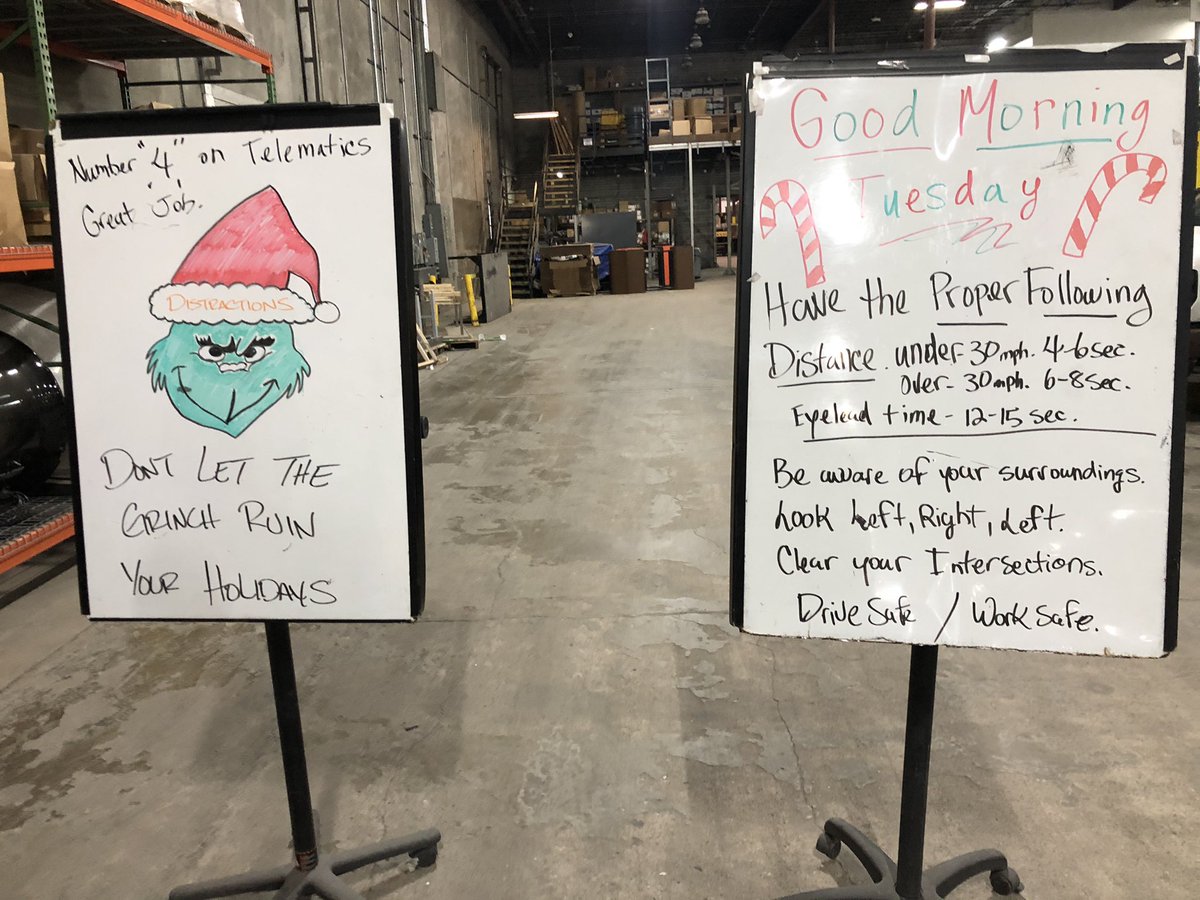 Number "4" on Telematics
Great "Job".
DISTRACTIONS
DONT LET THE
GRINCH RUIN
YOUR HOLIDAYS
Good Morning
Tuesday
Have the Proper Following
Distance. under-30mph. 4-6sec.
over-30mph. 6-8sec.
Eyelead time-12-15 sec.
Be aware of your surroundings.
Look Left, Right, Left.
Clear your Intersections.
Drive Safe / Work Safe.